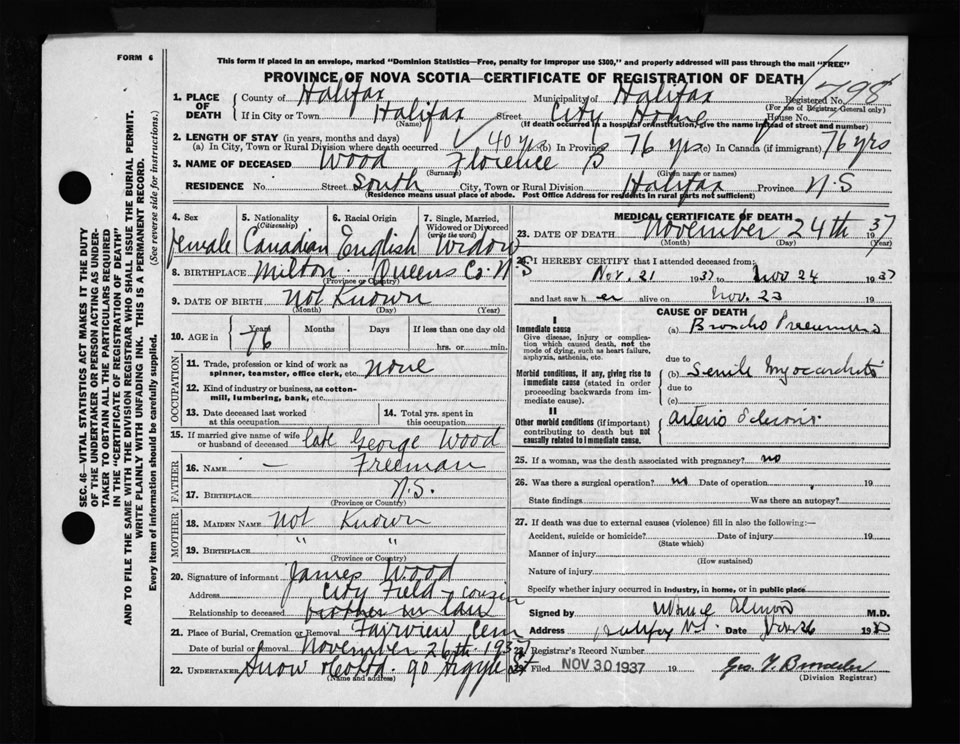 FORM 6
This form if placed in an envelope, marked "Dominion Statistics—Free, penalty for improper use $300," and properly addressed will pass through the mail "FREE"
PROVINCE OF NOVA SCOTIA—CERTIFICATE OF REGISTRATION OF DEATH
1. PLACE OF DEATH
County of Halifax Municipality of Halifax Registered No. 1798
(For use of Registrar-General only)
If in City or Town Halifax Street City Home House No.
(Name) (If death occurred in a hospital or institution, give the name instead of street and number)
2. LENGTH OF STAY (in years, months and days)
(a) In City, Town or Rural Division where death occurred 40 yrs (b) In Province 76 yrs (c) In Canada (if immigrant) 76 yrs
3. NAME OF DECEASED Wood Florence B
(Surname) (Given name or names)
RESIDENCE No. Street South City, Town or Rural Division Halifax Province N.S
(Residence means usual place of abode. Post Office Address for residents in rural parts not sufficient)
4. Sex 5. Nationality (Citizenship) 6. Racial Origin 7. Single, Married, Widowed or Divorced (write the word)
female Canadian English Widow
8. BIRTHPLACE Milton Queens Co. N.S
(Province or Country)
9. DATE OF BIRTH Not Known
(Month) (Day) (Year)
10. AGE in Years Months Days If less than one day old
76 hrs. or min.
OCCUPATION
11. Trade, profession or kind of work as spinner, teamster, office clerk, etc. None
12. Kind of industry or business, as cotton-mill, lumbering, bank, etc.
13. Date deceased last worked at this occupation
14. Total yrs. spent in this occupation
15. If married give name of wife or husband of deceased late George Wood
FATHER
16. NAME — Freeman
17. BIRTHPLACE N.S.
(Province or Country)
MOTHER
18. MAIDEN NAME Not Known
19. BIRTHPLACE " "
(Province or Country)
20. Signature of informant James Wood
Address City Field
Relationship to deceased brother in law cousin
21. Place of Burial, Cremation or Removal Fairview Cem
Date of burial or removal November 26th 1937
22. UNDERTAKER Snow & Co Ltd. 90 Argyle St
(Name and address)
MEDICAL CERTIFICATE OF DEATH
23. DATE OF DEATH November 24th 1937
(Month) (Day) (Year)
24. I HEREBY CERTIFY that I attended deceased from:
Nov. 21 1937 to Nov 24 1937
and last saw her alive on Nov. 23 19
CAUSE OF DEATH
I
Immediate cause
Give disease, injury or complication which caused death, not the mode of dying, such as heart failure, asphyxia, asthenia, etc.
(a) Broncho Pneumonia
due to
Morbid conditions, if any, giving rise to immediate cause (stated in order proceeding backwards from immediate cause).
(b) Senile Myocarditis
due to
(c)
II
Other morbid conditions (if important) contributing to death but not causally related to immediate cause.
Arterio Sclerosis
25. If a woman, was the death associated with pregnancy? no
26. Was there a surgical operation? no Date of operation 19
State findings Was there an autopsy?
27. If death was due to external causes (violence) fill in also the following:—
Accident, suicide or homicide? Date of injury 19
(State which)
Manner of injury
(How sustained)
Nature of injury
Specify whether injury occurred in industry, in home, or in public place
Signed by Almon M.D.
Address Halifax N.S. Date Nov 26 19
28. Registrar's Record Number
29. Filed NOV 30 1937 19
(Division Registrar)
SEC. 46—VITAL STATISTICS ACT MAKES IT THE DUTY
OF THE UNDERTAKER OR PERSON ACTING AS UNDER-
TAKER TO OBTAIN ALL THE PARTICULARS REQUIRED
IN THE "CERTIFICATE OF REGISTRATION OF DEATH"
AND TO FILE THE SAME WITH THE DIVISION REGISTRAR WHO SHALL ISSUE THE BURIAL PERMIT.
WRITE PLAINLY WITH UNFADING INK. THIS IS A PERMANENT RECORD.
Every item of information should be carefully supplied. (See reverse side for instructions.)